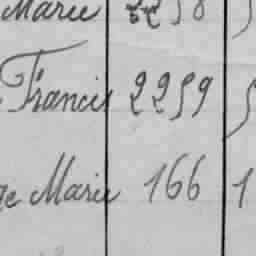 Marie 2258
Francis 2259
ge Marie 166 1